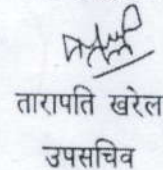 तारापति खरेल
उपसचिव